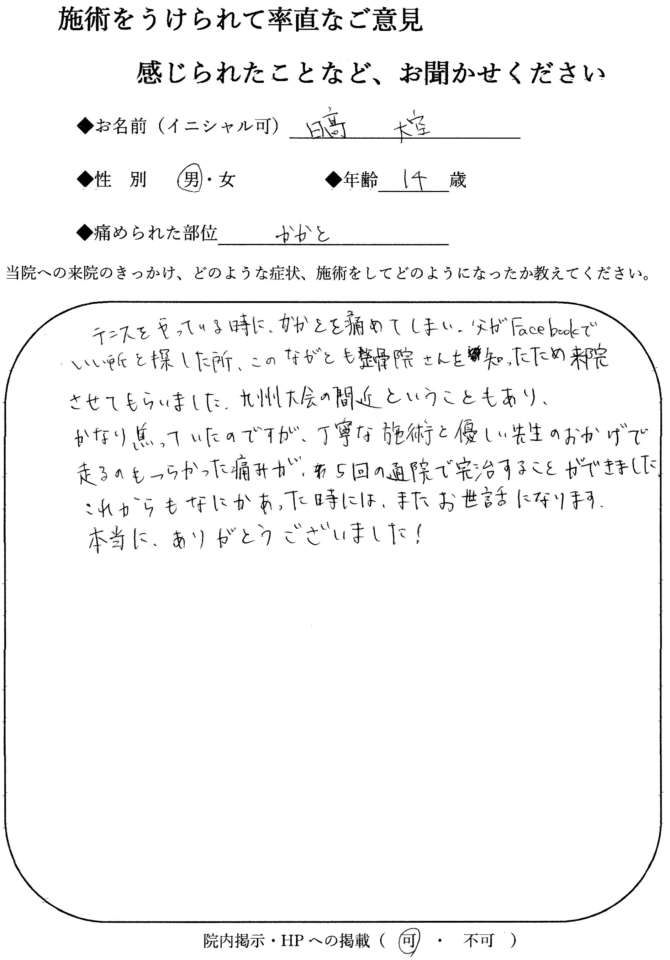 施術をうけられて率直なご意見
感じられたことなど、お聞かせください
◆お名前（イニシャル可） 日高 大空
◆性 別 男・女 ◆年齢 14 歳
◆痛められた部位 かかと
当院への来院のきっかけ、どのような症状、施術をしてどのようになったか教えてください。
テニスをやっている時に、かかとを痛めてしまい、父がFacebookで
いい所を探した所、このながとも整骨院さんを知ったため来院
させてもらいました。九州大会の間近ということもあり、
かなり焦っていたのですが、丁寧な施術と優しい先生のおかげで
走るのもつらかった痛みが、約5回の通院で完治することができました。
これからもなにかあった時には、またお世話になります。
本当に、ありがとうございました！
院内掲示・HPへの掲載（ 可 ・ 不可 ）